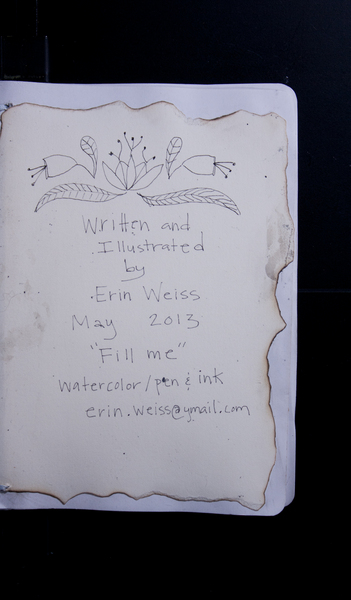 Written and
Illustrated
by
Erin Weiss
May 2013
"Fill me"
watercolor/pen & ink
erin.weiss@ymail.com